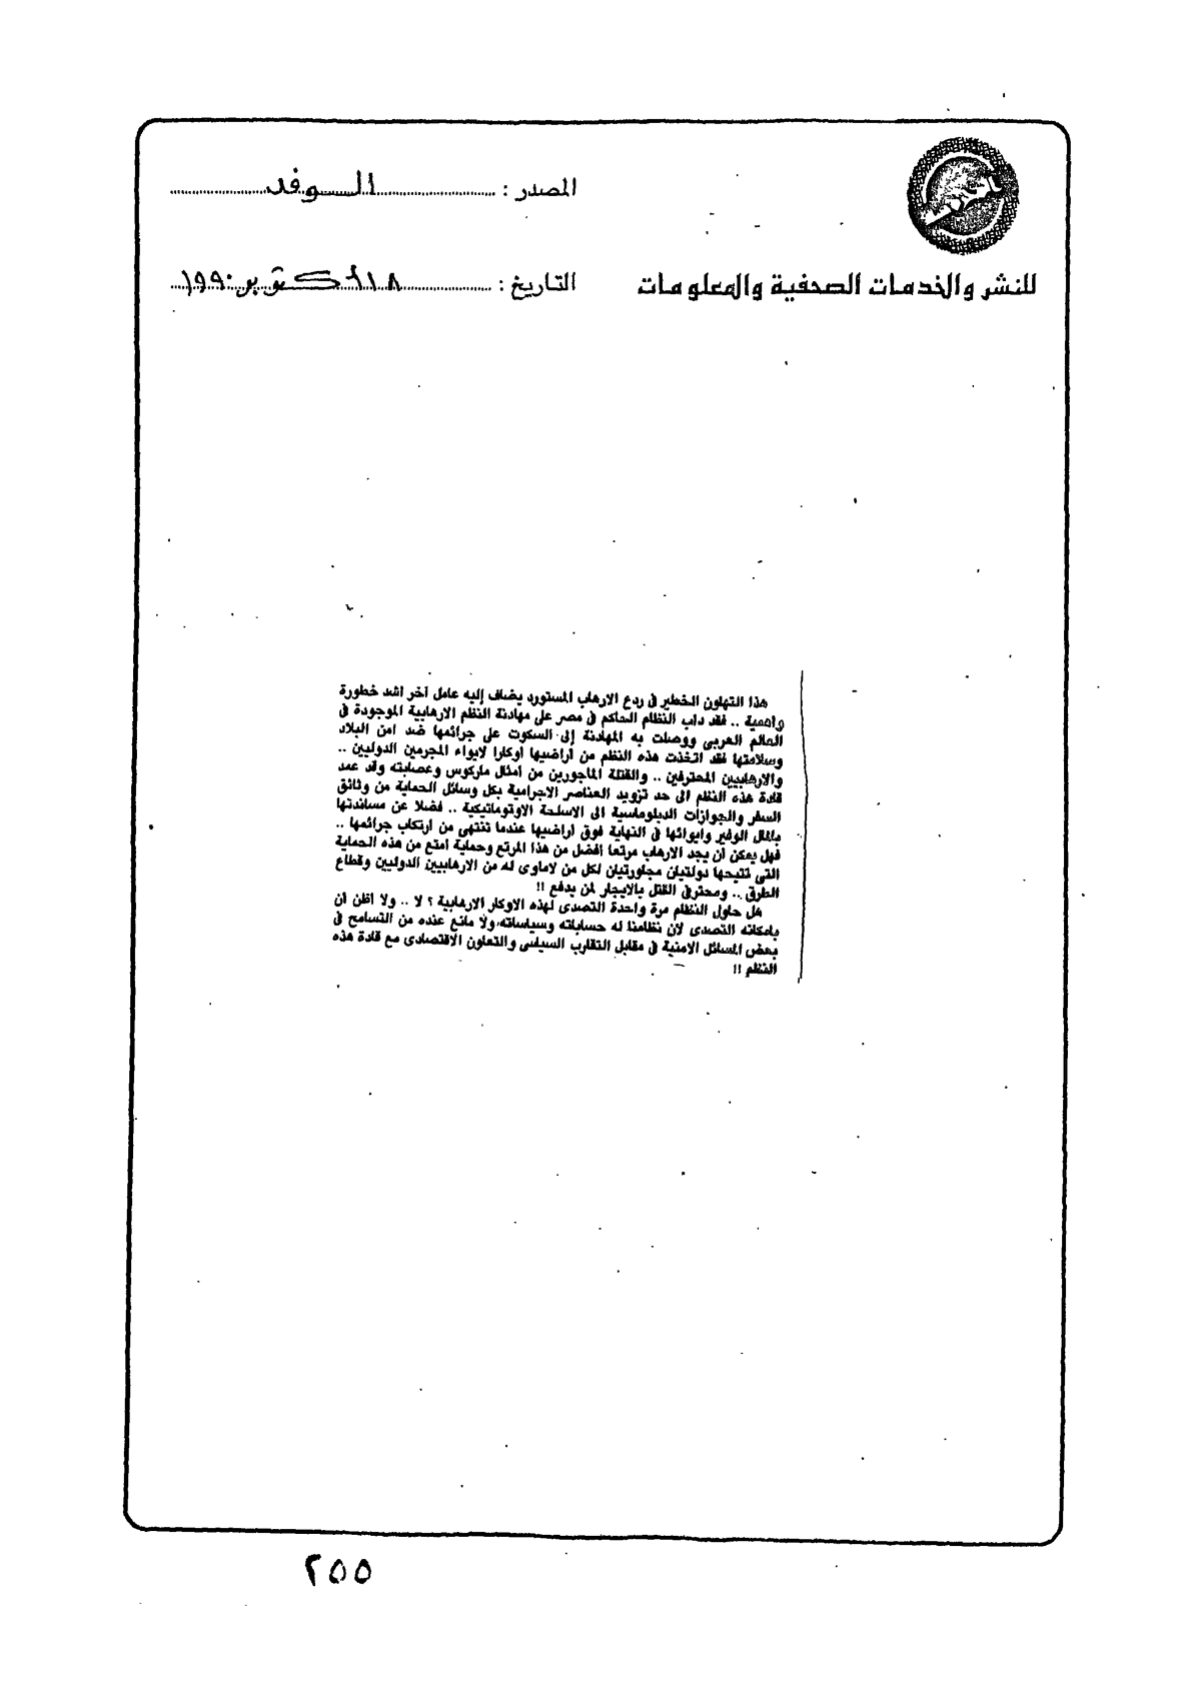 المصدر : الوفد
للنشر والخدمات الصحفية والمعلومات
التاريخ : ١٨ اكتوبر ١٩٩٠
هذا التهاون الخطير فى ردع الارهاب المستورد يضاف إليه عامل آخر اشد خطورة
واهمية .. فقد داب النظام الحاكم فى مصر على مهادنة النظم الارهابية الموجودة فى
العالم العربى ووصلت به المهادنة إلى السكوت على جرائمها ضد امن البلاد
وسلامتها فقد اتخذت هذه النظم من اراضيها اوكارا لايواء المجرمين الدوليين ..
والارهابيين المحترفين .. والقتلة الماجورين من امثال ماركوس وعصابته وقد عمد
قادة هذه النظم الى حد تزويد العناصر الاجرامية بكل وسائل الحماية من وثائق
السفر والجوازات الدبلوماسية الى الاسلحة الاوتوماتيكية .. فضلا عن مساندتها
بالمال الوفير وايوائها فى النهاية فوق اراضيها عندما تنتهى من ارتكاب جرائمها ..
فهل يمكن أن يجد الارهاب مرتعا أفضل من هذا المرتع وحماية امتع من هذه الحماية
التى تتيحها دولتيان مجاورتيان لكل من لاماوى له من الارهابيين الدوليين وقطاع
الطرق .. ومحترفى القتل بالايجار لمن يدفع !!
هل حاول النظام مرة واحدة التصدى لهذه الاوكار الارهابية ؟ لا .. ولا اظن ان
بامكانه التصدى لان نظامنا له حساباته وسياساته ولا مانع عنده من التسامح فى
بعض المسائل الامنية فى مقابل التقارب السياسى والتعاون الاقتصادى مع قادة هذه
النظم !!
٢٥٥